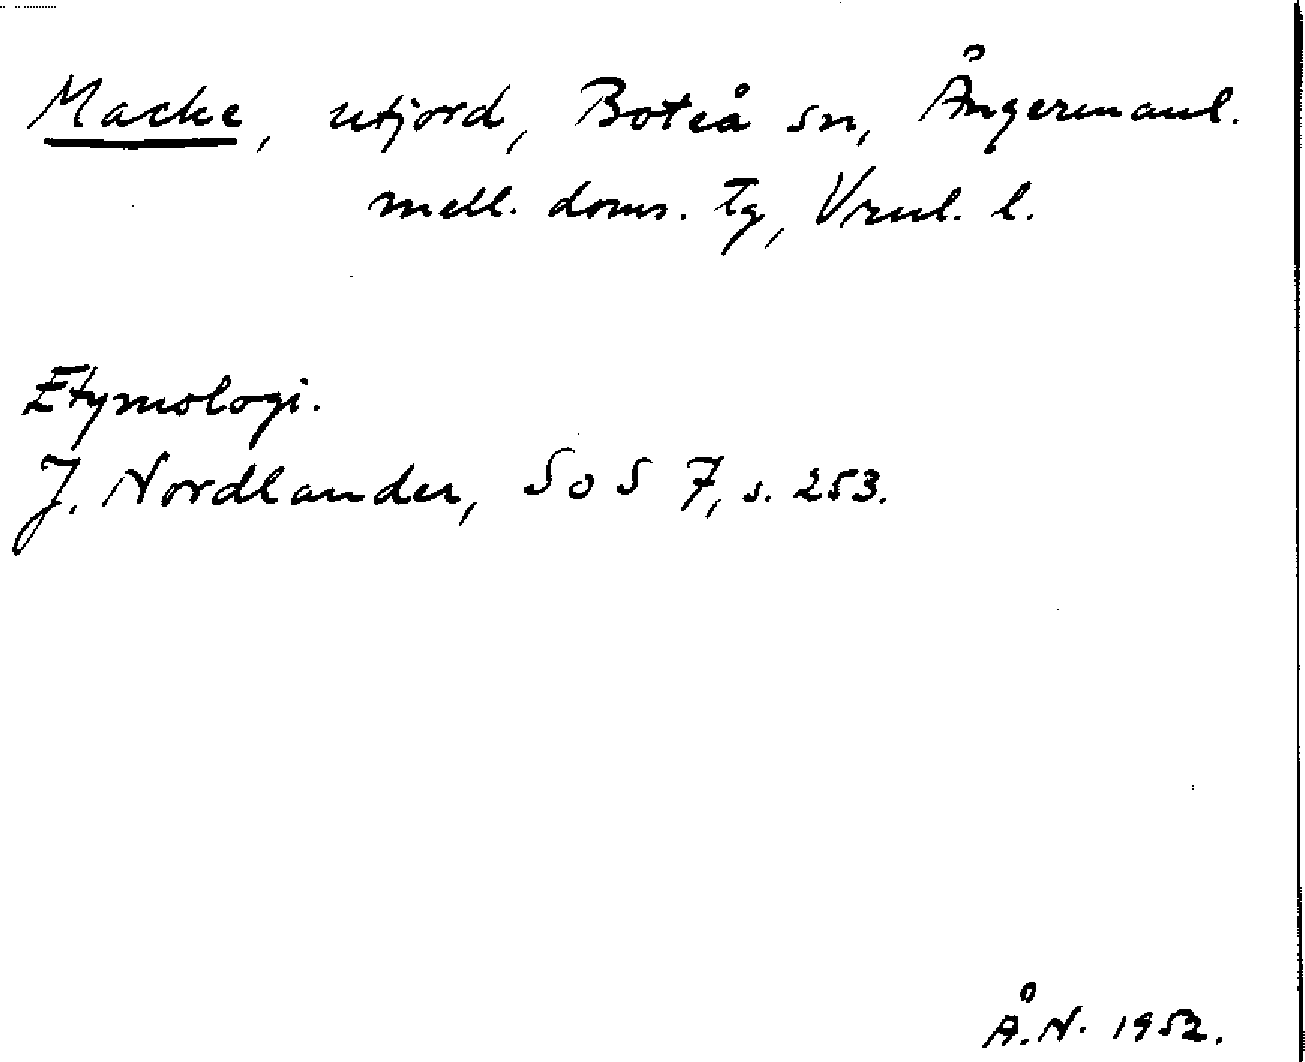 Macke, utjord, Boteå sn, Ångermanl.
mell. doms. tg, Vrnl. l.
Etymologi.
J. Nordlander, SoS 7, s. 253.
Å.N. 1952.